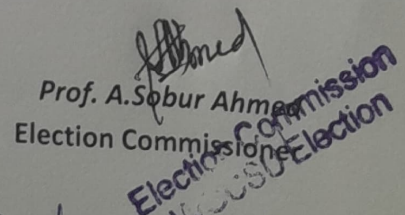 Ahmed
Prof. A.Sobur Ahmed
Election Commissioner
Election Commission
Election